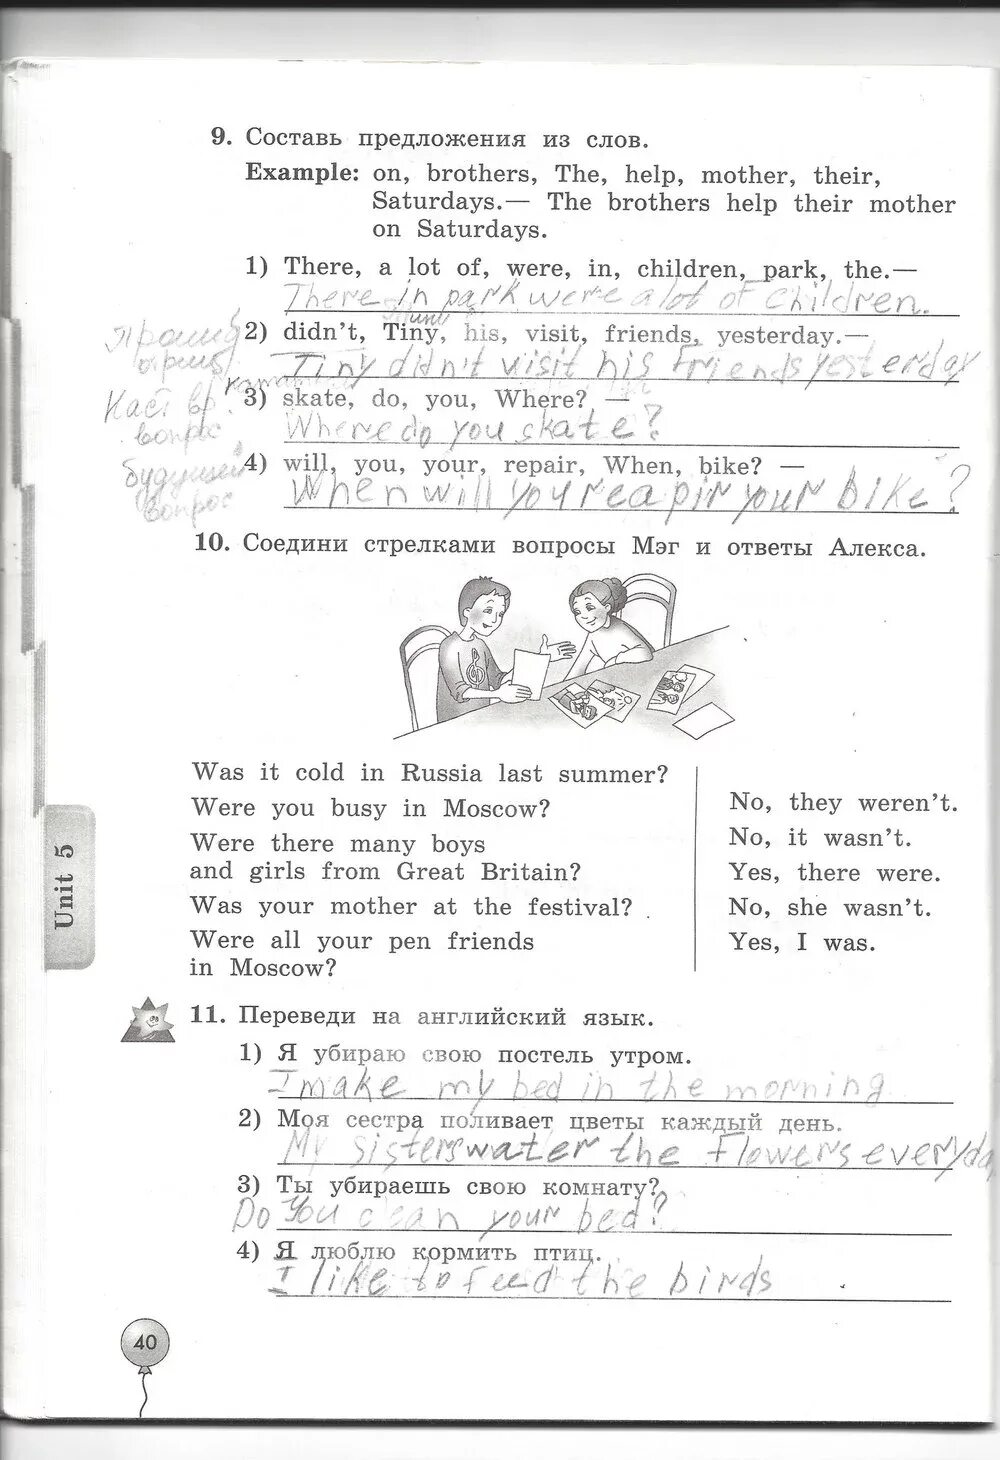 9. Составь предложения из слов.
Example: on, brothers, The, help, mother, their,
Saturdays.— The brothers help their mother
on Saturdays.
1) There, a lot of, were, in, children, park, the.—
There in park were a lot of children.
2) didn't, Tiny, his, visit, friends, yesterday.—
Tiny didn't visit his friends yesterday
3) skate, do, you, Where? —
Where do you skate?
вопрос
4) will, you, your, repair, When, bike? —
When will you reapir your bike?
вопрос
10. Соедини стрелками вопросы Мэг и ответы Алекса.
Was it cold in Russia last summer?
Were you busy in Moscow?
Were there many boys
and girls from Great Britain?
Was your mother at the festival?
Were all your pen friends
in Moscow?
No, they weren't.
No, it wasn't.
Yes, there were.
No, she wasn't.
Yes, I was.
Unit 5
11. Переведи на английский язык.
1) Я убираю свою постель утром.
I make my bed in the morning
2) Моя сестра поливает цветы каждый день.
My sisters water the flowers everyday
3) Ты убираешь свою комнату?
Do you clean your bed?
4) Я люблю кормить птиц.
I like to feed the birds
40